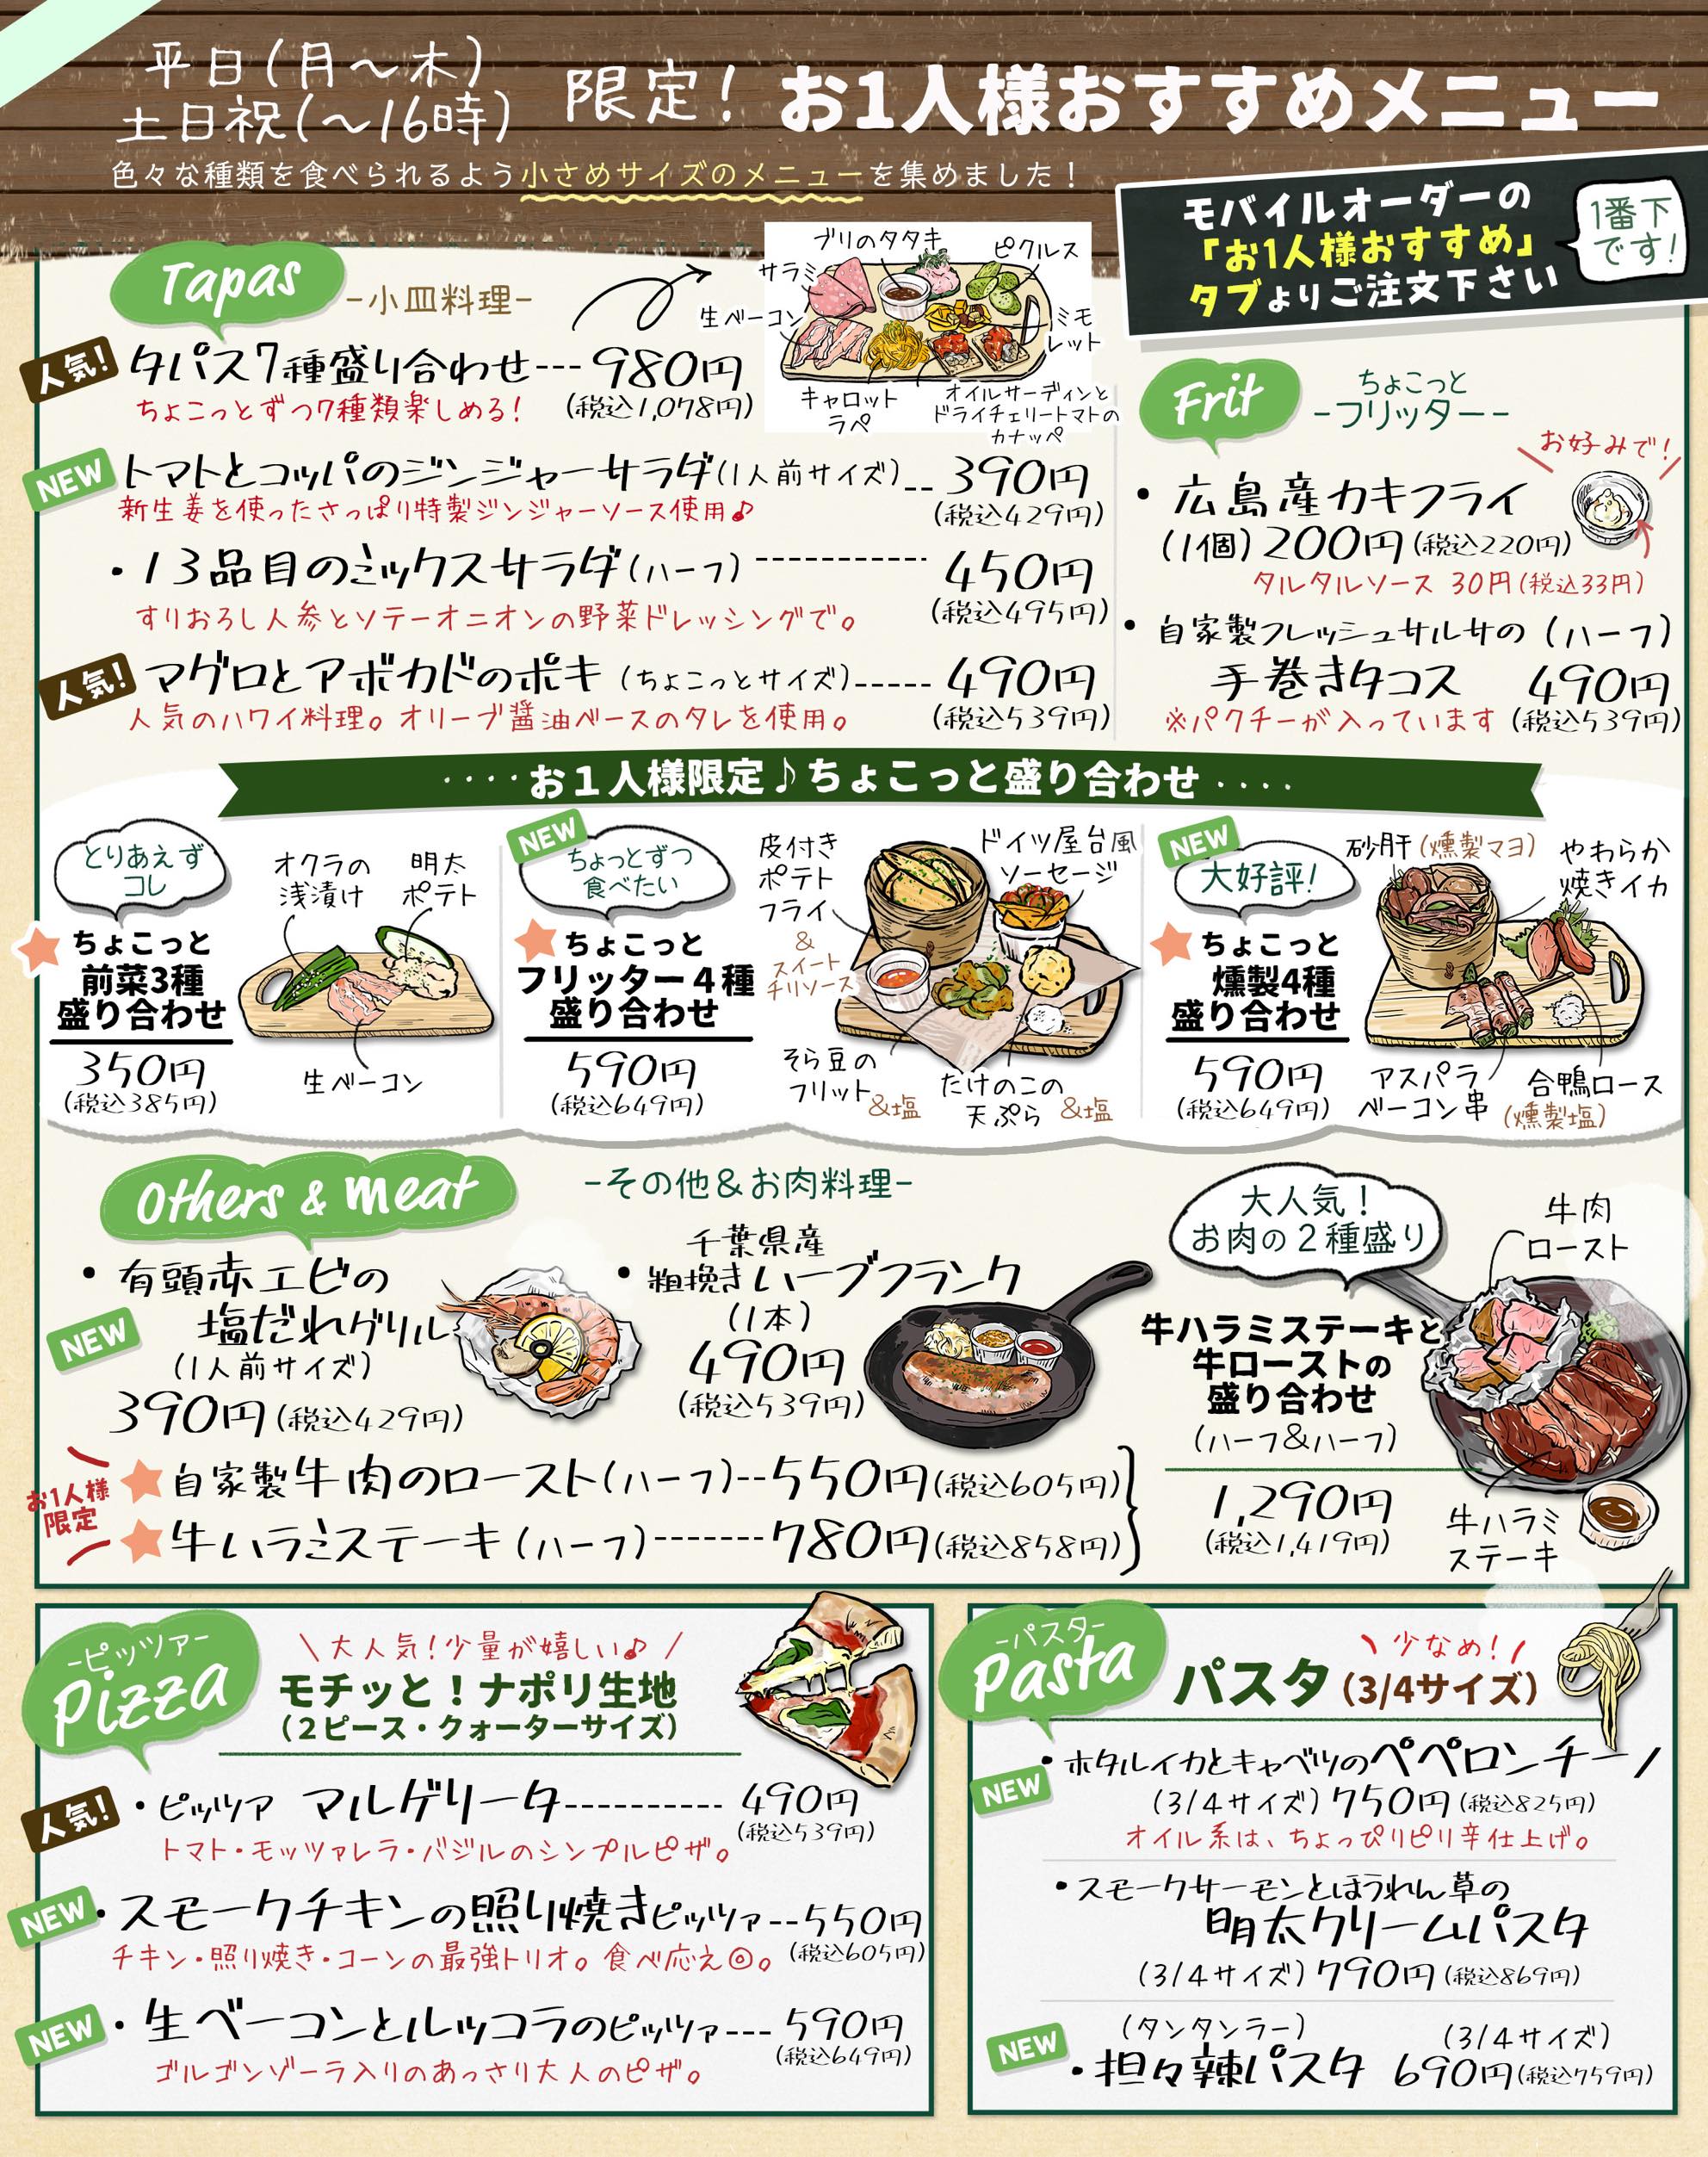 平日(月～木)
土日祝(～16時)
限定! お1人様おすすめメニュー
色々な種類を食べられるよう小さめサイズのメニューを集めました!
モバイルオーダーの
「お1人様おすすめ」
タブよりご注文下さい
1番下
です!
Tapas -小皿料理-
人気! タパス7種盛り合わせ---980円
ちょこっとずつ7種類楽しめる! (税込1,078円)
ブリのタタキ
サラミ
ピクルス
生ベーコン
ミモ
レット
キャロット
ラペ
オイルサーディンと
ドライチェリートマトの
カナッペ
NEW トマトとコッパのジンジャーサラダ(1人前サイズ)--390円
新生姜を使ったさっぱり特製ジンジャーソース使用♪ (税込429円)
・13品目のミックスサラダ(ハーフ)----------450円
すりおろし人参とソテーオニオンの野菜ドレッシングで。 (税込495円)
人気! マグロとアボカドのポキ(ちょこっとサイズ)-----490円
人気のハワイ料理。オリーブ醤油ベースのタレを使用。 (税込539円)
Frit
ちょこっと
-フリッター-
お好みで!
・広島産カキフライ
(1個)200円(税込220円)
タルタルソース 30円(税込33円)
・自家製フレッシュサルサの(ハーフ)
手巻きタコス 490円
※パクチーが入っています (税込539円)
····お1人様限定♪ちょこっと盛り合わせ····
とりあえず
コレ
オクラの
浅漬け
明太
ポテト
ちょこっと
前菜3種
盛り合わせ
350円
(税込385円)
生ベーコン
NEW
ちょっとずつ
食べたい
ちょこっと
フリッター4種
盛り合わせ
590円
(税込649円)
皮付き
ポテト
フライ
&
スイート
チリソース
ドイツ屋台風
ソーセージ
そら豆の
フリット&塩
たけのこの
天ぷら &塩
NEW
大好評!
ちょこっと
燻製4種
盛り合わせ
590円
(税込649円)
砂肝(燻製マヨ)
やわらか
焼きイカ
アスパラ
ベーコン串
合鴨ロース
(燻製塩)
Others & meat -その他&お肉料理-
・有頭赤エビの
NEW 塩だれグリル
(1人前サイズ)
390円(税込429円)
千葉県産
・粗挽きハーブフランク
(1本)
490円
(税込539円)
大人気!
お肉の2種盛り
牛肉
ロースト
牛ハラミステーキと
牛ローストの
盛り合わせ
(ハーフ&ハーフ)
1,290円
(税込1,419円)
牛ハラミ
ステーキ
お1人様
限定
自家製牛肉のロースト(ハーフ)--550円(税込605円)
牛ハラミステーキ(ハーフ)------780円(税込858円)
-ピッツァ-
Pizza
\大人気!少量が嬉しい♪/
モチッと!ナポリ生地
(2ピース・クォーターサイズ)
人気! ・ピッツァ マルゲリータ----------490円
(税込539円)
トマト・モッツァレラ・バジルのシンプルピザ。
NEW ・スモークチキンの照り焼きピッツァ--550円
チキン・照り焼き・コーンの最強トリオ。食べ応え◎。 (税込605円)
NEW ・生ベーコンとルッコラのピッツァ---590円
(税込649円)
ゴルゴンゾーラ入りのあっさり大人のピザ。
-パスタ-
Pasta
\少なめ!/
パスタ(3/4サイズ)
・ホタルイカとキャベツのペペロンチーノ
NEW (3/4サイズ)750円(税込825円)
オイル系は、ちょっぴりピリ辛仕上げ。
・スモークサーモンとほうれん草の
明太クリームパスタ
(3/4サイズ)790円(税込869円)
(タンタンラー) (3/4サイズ)
NEW ・担々辣パスタ 690円(税込759円)